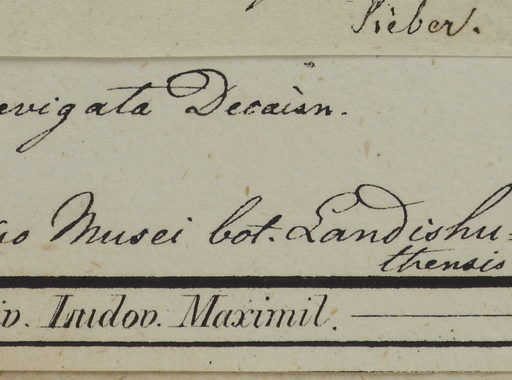 Sieber.
evigata Decaisn.
io Musei bot. Landishu=
thensis
iv. Ludov. Maximil.